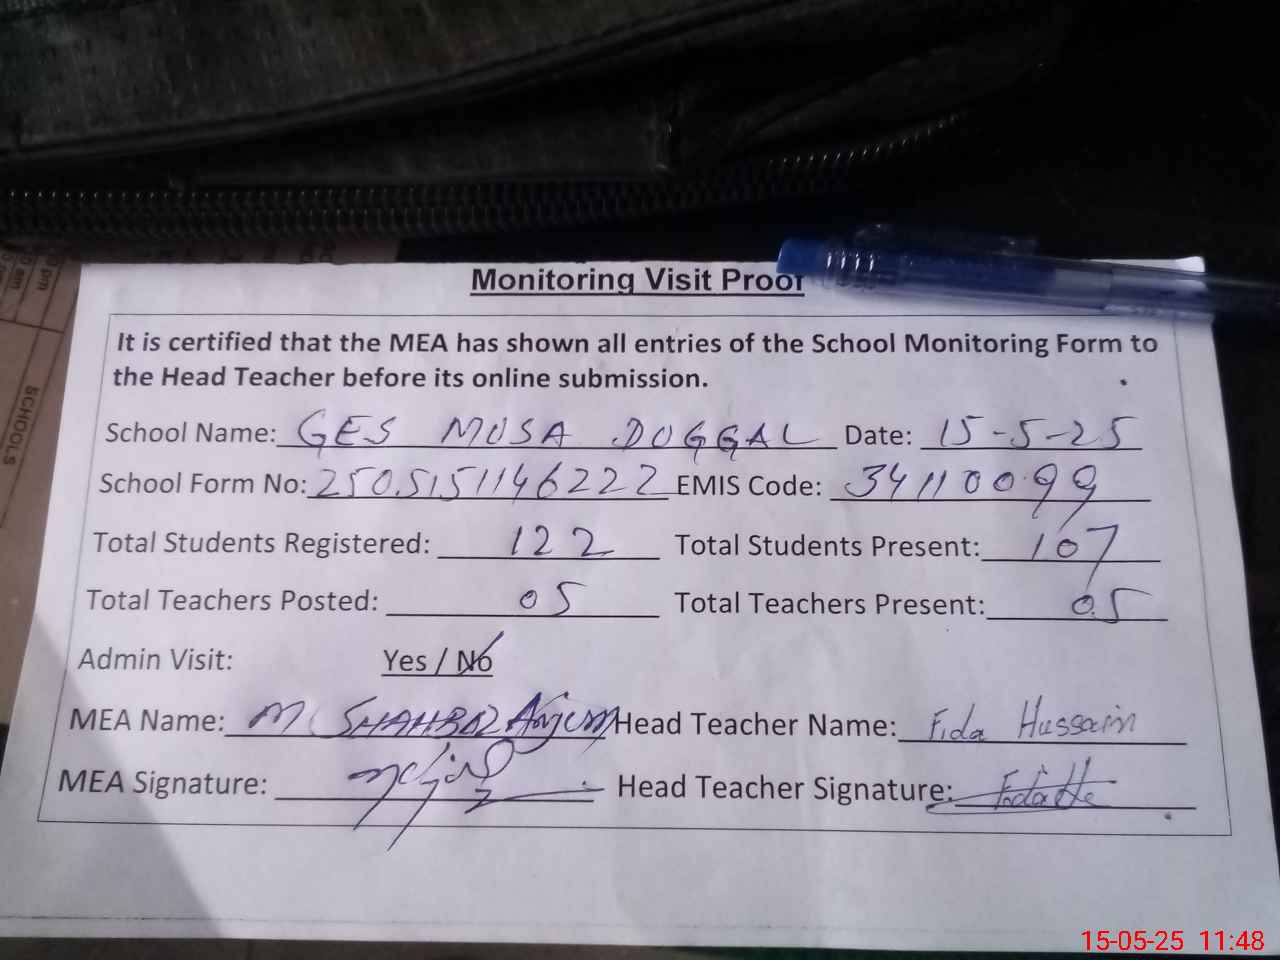 Monitoring Visit Proof
It is certified that the MEA has shown all entries of the School Monitoring Form to
the Head Teacher before its online submission.
School Name: GES MUSA DOGGAL Date: 15-5-25
School Form No: 2505151146222 EMIS Code: 34110099
Total Students Registered: 122 Total Students Present: 107
Total Teachers Posted: 05 Total Teachers Present: 05
Admin Visit: Yes / No
MEA Name: M SHAHBAZ Anjum Head Teacher Name: Fida Hussain
MEA Signature: Head Teacher Signature:
SCHOOLS
15-05-25 11:48